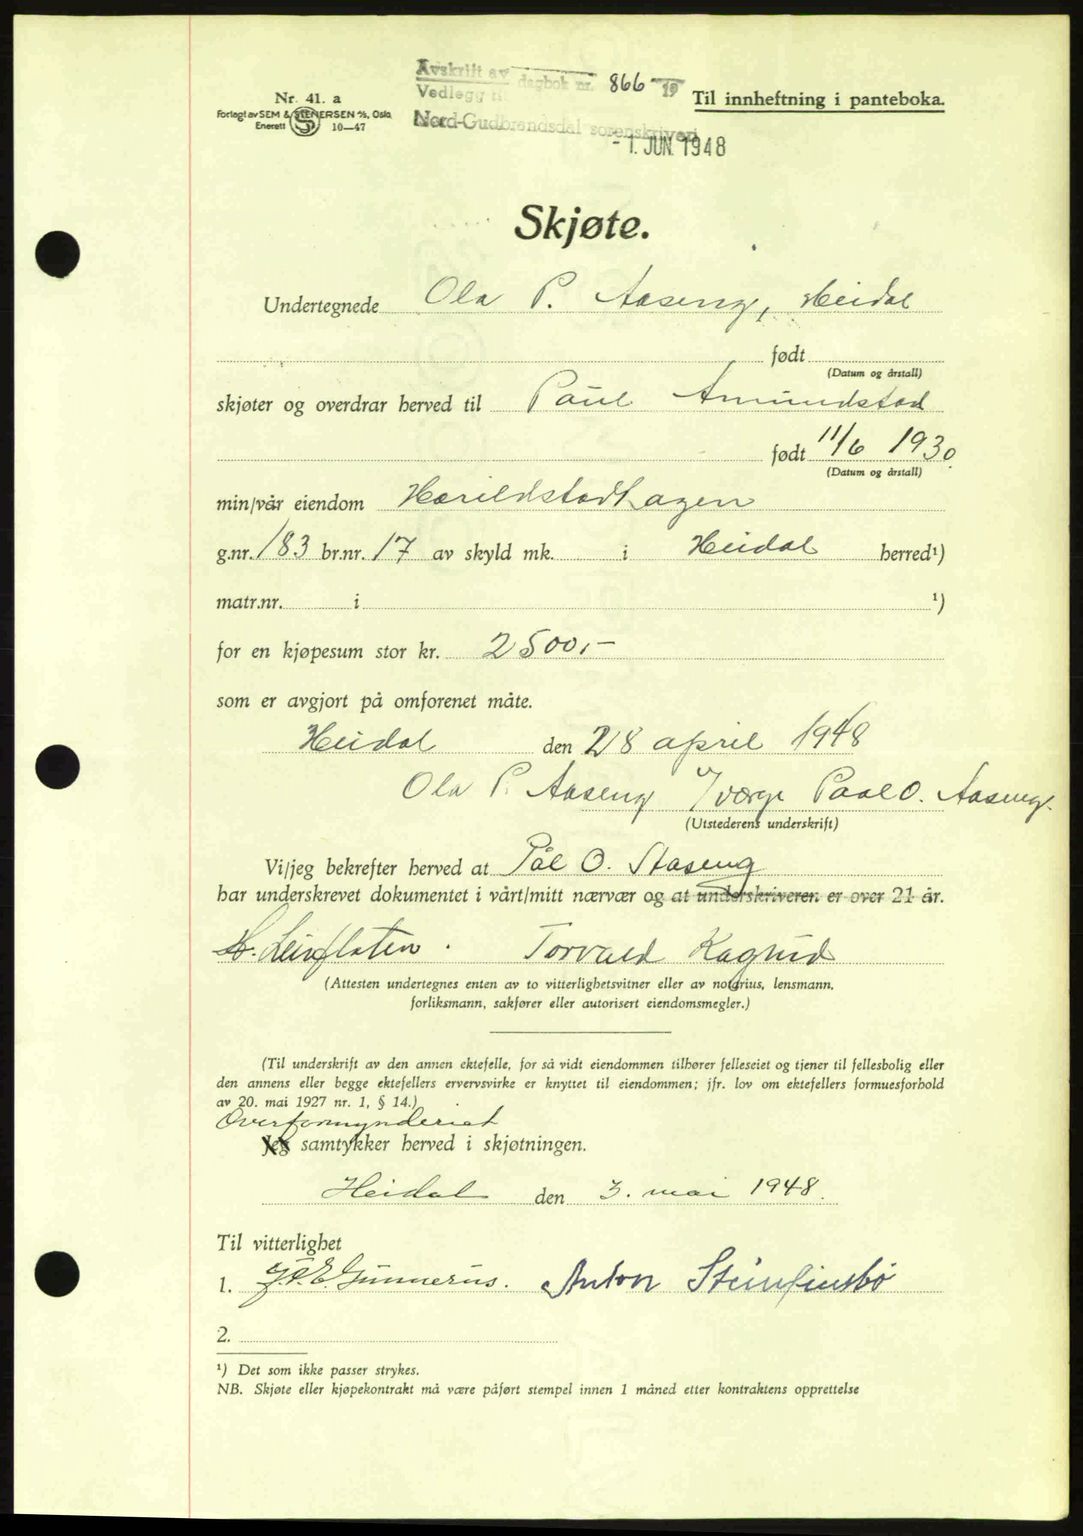 Avskrift av dagbok nr. 866 19
Vedlegg til
Nord-Gudbrandsdal sorenskriveri
- 1. JUN. 1948
Nr. 41. a
Forlagt av SEM & STENERSEN A/S, Oslo
Enerett S 10—47
Til innheftning i panteboka.
Skjøte.
Undertegnede Ola P. Aaseng, Heidal
født
(Datum og årstall)
skjøter og overdrar herved til Paul Amundstad
født 11/6 1930
(Datum og årstall)
min/vår eiendom Harildstadhagen
g.nr. 183 br.nr. 17 av skyld mk. i Heidal herred¹)
matr.nr. i ¹)
for en kjøpesum stor kr. 2500,-
som er avgjort på omforenet måte.
Heidal den 28 april 1948
Ola P. Aaseng Paal O. Aaseng
(Utstederens underskrift)
Vi/jeg bekrefter herved at Pål O. Aaseng
har underskrevet dokumentet i vårt/mitt nærvær og at underskriveren er over 21 år.
H. Leirflaten. Torvald Kagrud
(Attesten undertegnes enten av to vitterlighetsvitner eller av notarius, lensmann,
forliksmann, sakfører eller autorisert eiendomsmegler.)
(Til underskrift av den annen ektefelle, for så vidt eiendommen tilhører felleseiet og tjener til fellesbolig eller
den annens eller begge ektefellers ervervsvirke er knyttet til eiendommen; jfr. lov om ektefellers formuesforhold
av 20. mai 1927 nr. 1, § 14.)
Overformynderiet
Jeg samtykker herved i skjøtningen.
Heidal den 3. mai 1948.
Til vitterlighet
1. Gunnerus. Anton Steinfinsbø
2.
¹) Det som ikke passer strykes.
NB. Skjøte eller kjøpekontrakt må være påført stempel innen 1 måned etter kontraktens opprettelse